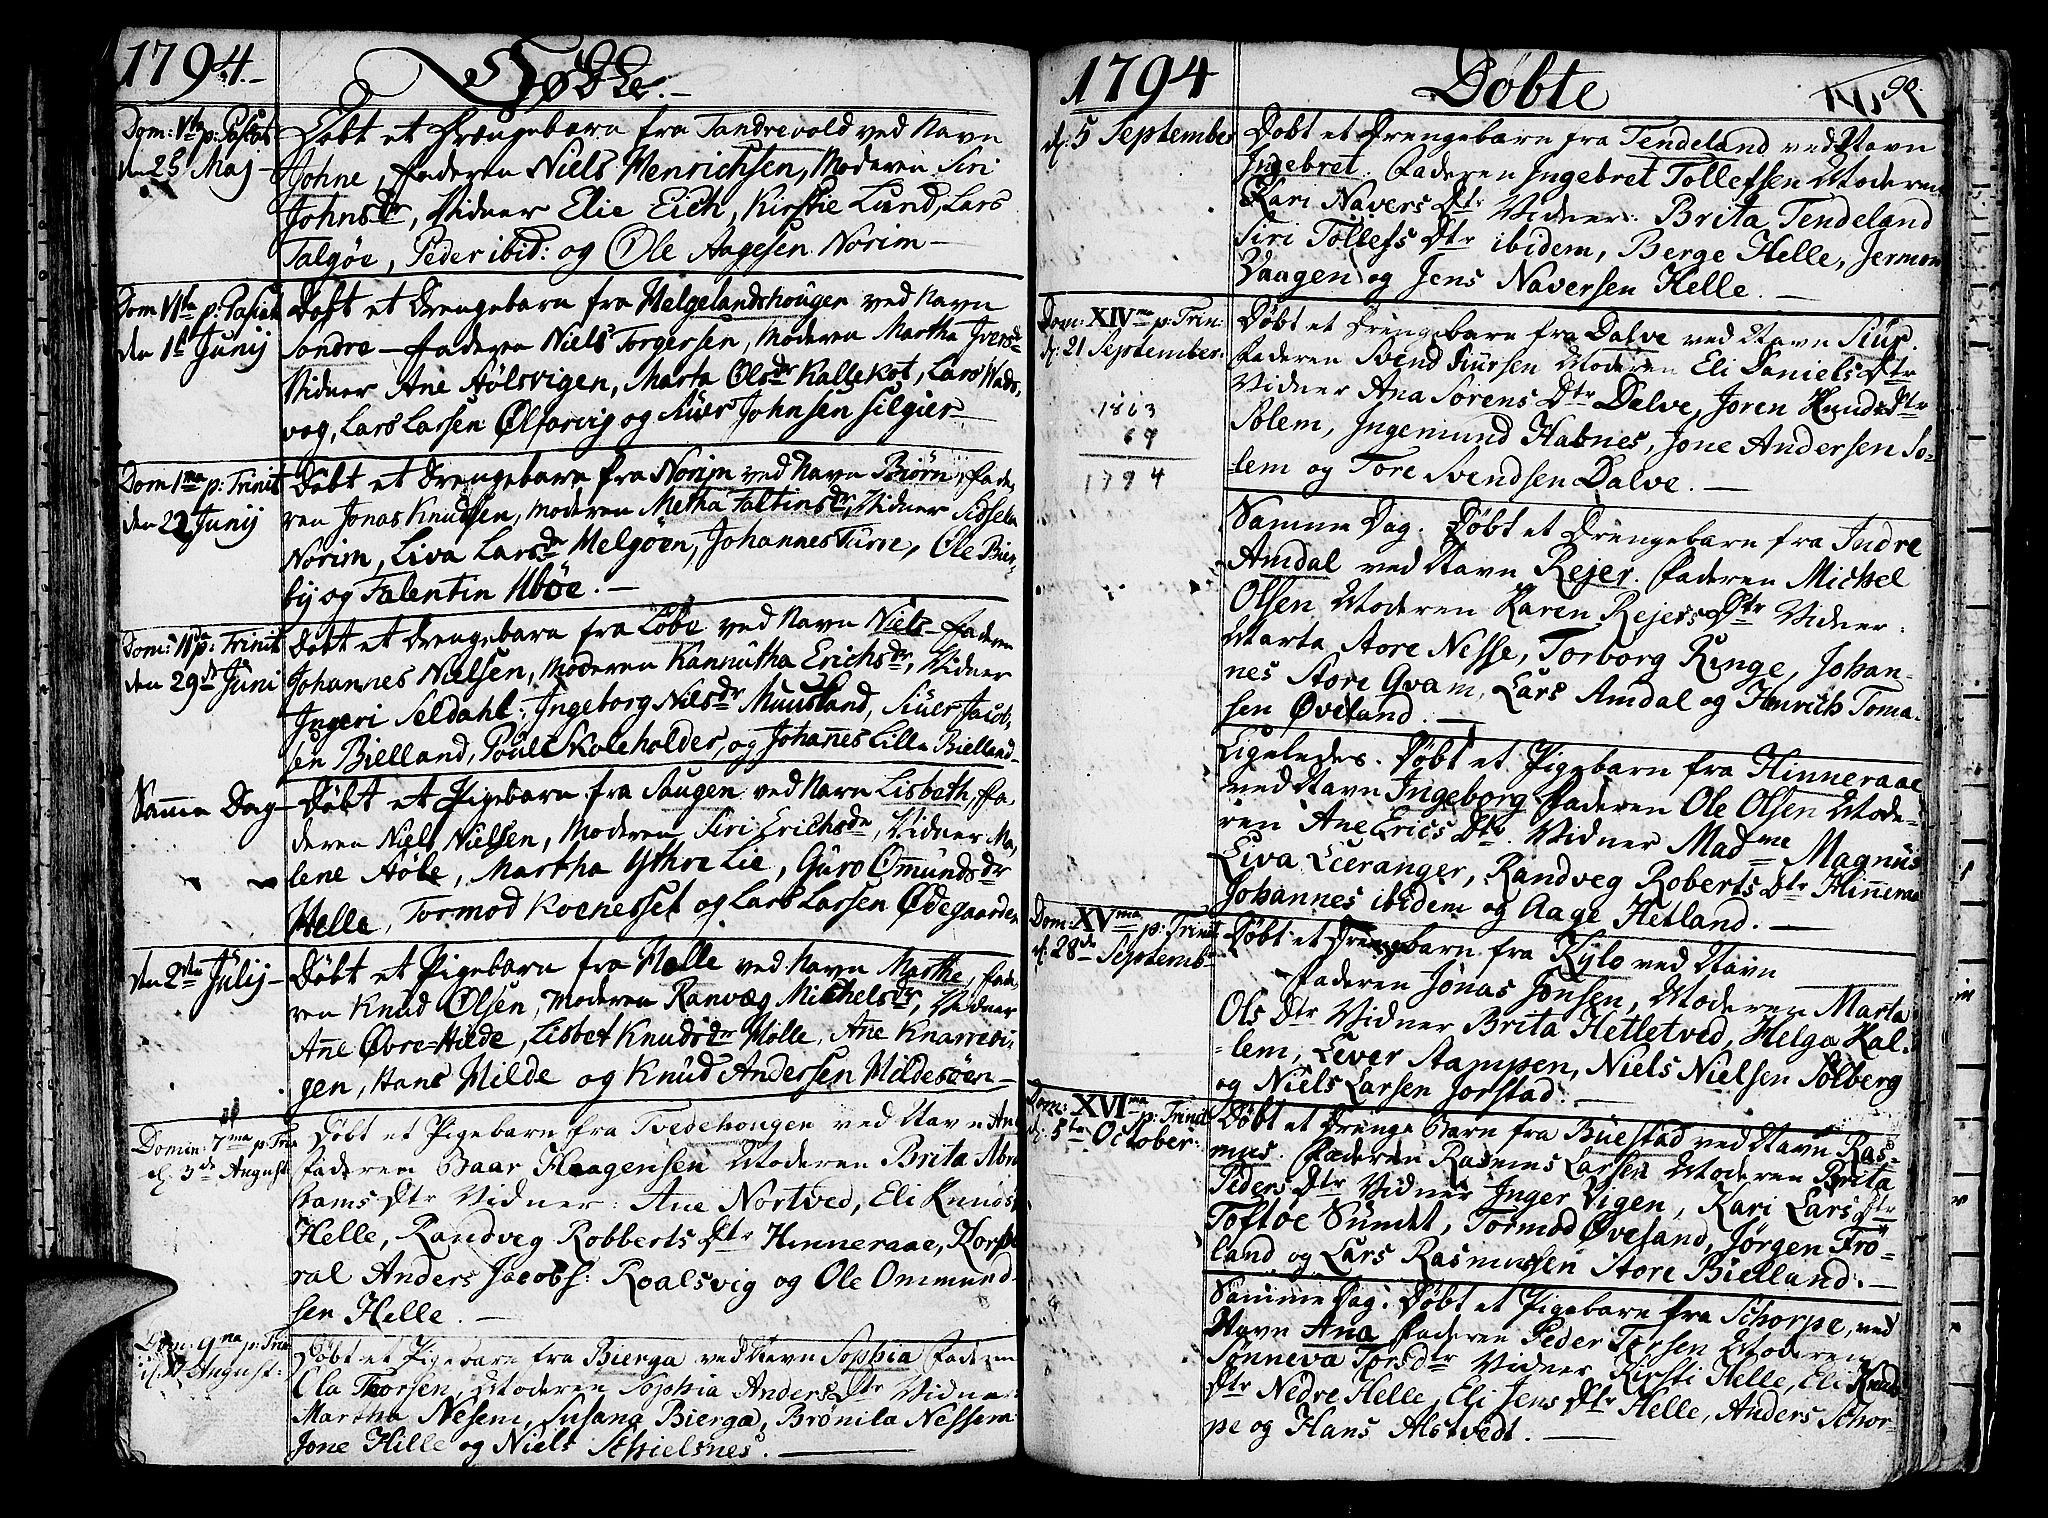 1794.-
Døbte.-
Dom: Vta p: Pasch:
den 25 Maj
Døbt et Drængebarn fra Tandrevold ved Navn
Johne, Faderen Niels Henrichsen, Moderen Siri
Johnsdr, Vidner Elie Eich, Kirstie Lund, Lars
Talgøe, Peder ibid: og Ole Aagesen Norim-
Dom VIta p: Pasch
den 1t Junij
Døbt et Drengebarn fra Helgelandshougen ved Navn
Sondre - Faderen Niels Torgersen, Moderen Martha Iversdr
Vidner Ane Aølsvigen, Marta Olsdr Kallekot, Lars Wads-
vog, Lars Larsen Ølfarvig og Siver Johnsen Silgier-
Dom 1ma p: Trinit
den 22 Junij
Døbt et Drengebarn fra Norim ved Navn Biørn, Fade-
ren Jonas Knudsen, Moderen Metha Faltinsdr, Vidner Sidsela
Norim, Liva Larsdr Melgøen, Johannes Turre, Ole Bier-
by og Falentin Ubøe.-
Dom: IIda p: Trinit
den 29de Juni
Døbt et Drengebarn fra Løbe ved Navn Niels - Faderen
Johannes Nielsen, Moderen Kannutha Erichsdr, Vidner
Ingeri Seldahl, Ingeborg Nielsdr Muusland, Siver Jacob-
sen Bielland, Poul Skoleholder, og Johañes Lille Bielland-
Same Dag-
Døbt et Pigebarn fra Haugen ved Navn Lisbeth, Fa-
deren Niels Nielsen, Moderen Siri Erichsdr, Vidner Ma-
lene Aøle, Martha Ythre Lie, Guro Omundsdr
Helle, Tormod Koenesset og Lars Larsen Ødegaarden
den 2den Julij-
Døbt et Pigebarn fra Helle ved Navn Marthe, Fade-
ren Knud Olsen, Moderen Ranvæg Michelsdr, Vidner
Añe Øvre-Hilde, Lisbet Knudsdr Holle, Añe Knarrevi-
gen, Hans Hilde og Knud Andersen Hildesøen-
Domin: 7ma p Trin
d. 3de August
Døbt et Pigebarn fra Tvedehougen ved Navn Ane
Faderen Baar Haagensen Moderen Brita Abra-
hams Dtr Vidner: Ane Nortved, Eli Knuds
Helle, Randveg Robberts Dtr Hinneraae, Korpo
ral Anders Jacobs: Roalsvig og Ole Ommund-
sen Helle.-
Dom: 9ma p: Trin
August:
Døbt et Pigebarn fra Bierga ved Navn Sophia Faderen
Ola Thorsen, Moderen Sophia Anders Dtr Vidner
Martha Nesem, Susana Bierga, Brønila Nessem
Jone Hille og Niels Schielsnes.-
1794
Døbte
90.
d. 5 September
Døbt et Drengebarn fra Tendeland ved Navn
Ingebret. Faderen Ingebret Tollefsen Moderen
Kari Navers Dtr Vidner: Brita Tendeland
Siri Tollefs Dtr ibidem, Berge Helle, Jermon
Vaagen og Jens Naversen Helle.-
Dom: XIVma p: Trin:
d. 21 September:
1863
69
1794
Døbt et Drengebarn fra Dalve ved Navn Siur.
Faderen Svend Siursen Moderen Eli Daniels Dtr
Vidner Ana Sørens Dtr Dalve, Joren Knuds Dtr
Solem, Ingemund Habnes, Jone Andersen So-
-lem og Tore Svendsen Dalve.-
Samme Dag. Døbt et Drengebarn fra Indre
Amdal ved Navn Rejer. Faderen Michel
Olsen Moderen Karen Rejers Dtr Vidner:
Marta Store Nesse, Torborg Ringe, Johan-
nes Store Qvam, Lars Amdal og Henrich Toma-
sen Øveland.-
Ligeledes. Døbt et Pigebarn fra Hinneraae
ved Navn Ingeborg Faderen Ole Olsen Mode-
ren Ane Erics Dtr Vidner Madme Magnus
Liva Leeranger, Randveg Roberts Dtr Hinnerae
Johannes ibidem og Aage Hetland.-
Dom: XVma p: Trinit
d. 28de Septemb
Døbt et Drengebarn fra Kylo ved Navn
Faderen Jonas Jonsen, Moderen Marta
Ols Dtr Vidner Brita Hetletved, Helga Hal-
-lem, Lever Stampen, Niels Nielsen Solberg
og Niels Larsen Jorstad.-
Dom: XVIma p: Trinit
d. 5te October:
Døbt et Drenge Barn fra Buestad ved Navn Ras-
mus. Faderen Rasmus Larsen Moderen Brita
Peders Dtr Vidner Inger Vigen, Kari Lars Dtr
Toftøe Sundet, Tormod Øveland, Jørgen Frø-
land og Lars Rasmussen Store Bielland.-
Samme Dag. Døbt et Pigebarn fra Schorpe, ved
Navn Ana Faderen Peder Torsen Moderen
Sønneva Tors dtr Vidner Kirsti Helle, Eli Knuds
Dtr Nedre Helle, Eli Jens Dtr Helle, Anders Schor-
pe og Hans Alstvedt.-